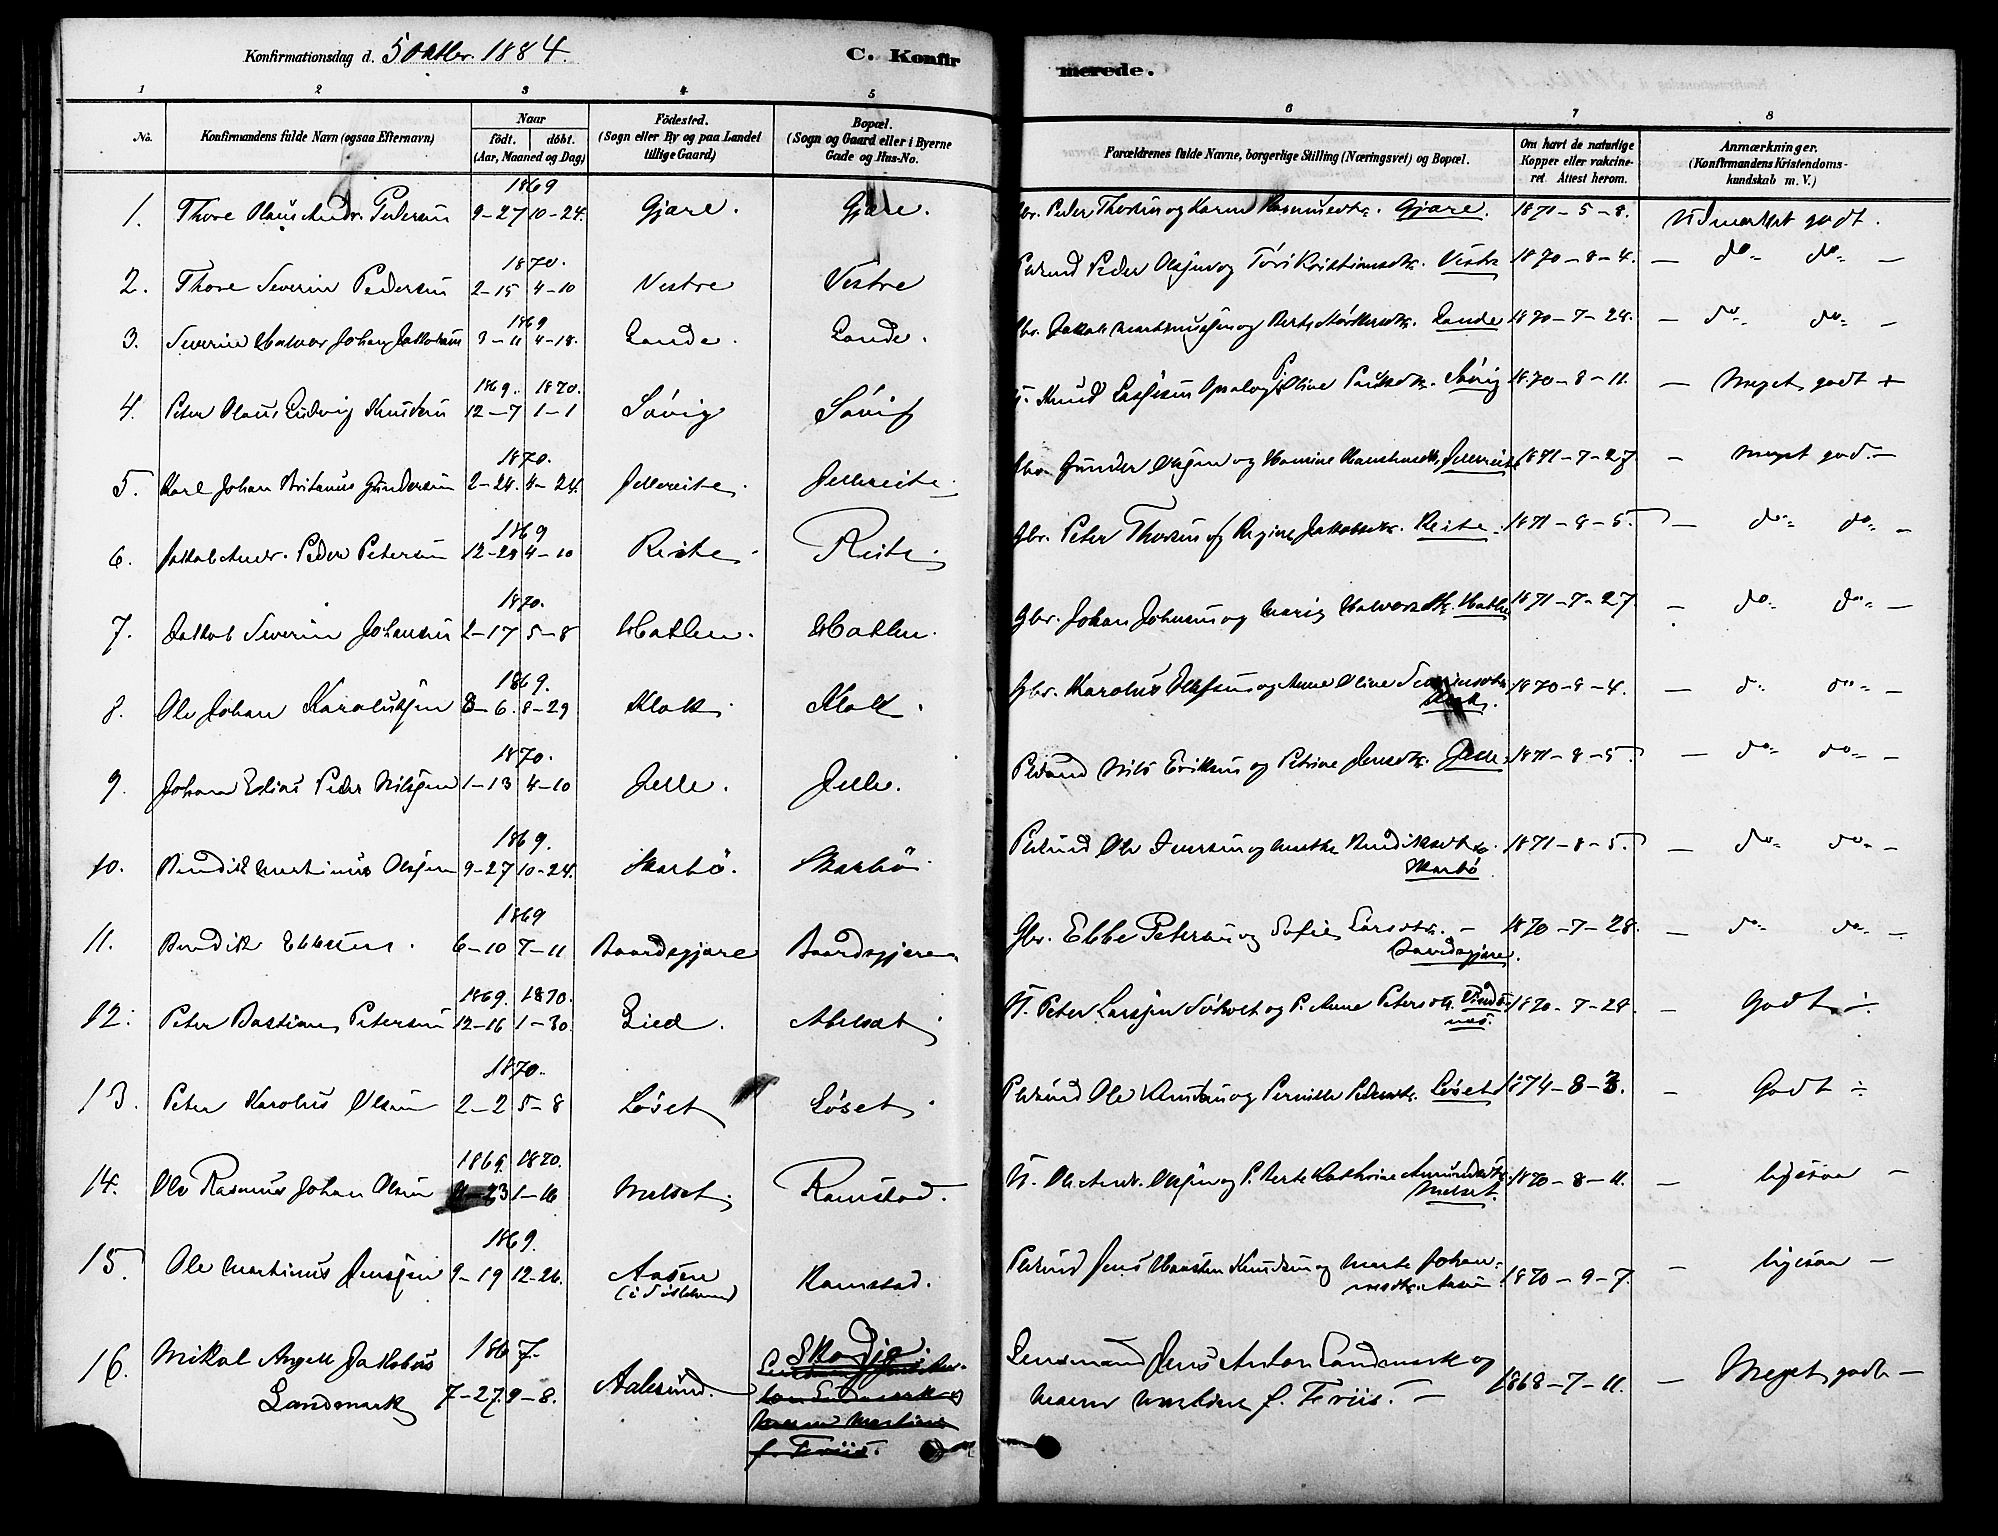 Konfirmationsdag d. 5 Oktbr. 1884.
C. Konfirmerede.
1 2 3 4 5 6 7 8
No. Konfirmandens fulde Navn (ogsaa Efternavn) Naar født. døbt. (Aar, Maaned og Dag) Födested. (Sogn eller By og paa Landet tillige Gaard) Bopæl. (Sogn og Gaard eller i Byerne Gade og Hus-No. Forældrenes fulde Navne, borgerlige Stilling (Næringsvei) og Bopæl. Om havt de naturlige Kopper eller vakcineret. Attest herom. Anmærkninger. (Konfirmandens Kristendomskundskab m. V.)
1869
1. Thore Olaus Andr. Pedersen 9-27 10-24. Gjære. Gjære. Gbr. Peder Thoresen og Karen Rasmusdtr. Gjære. 1871-5-8. Udmærket godt.
1870.
2. Thore Severin Pedersen 2-15 4-10 Vestre Vestre Peder Olsen og Kristiansdtr. Vestre 1870-8-4. — do do —
1869
3. Severin Halvor Johan Jakobsen 3-11 4-18. Lande. Lande. Gbr. Jakob Lande 1870-7-28. — do do —
1869. 1870.
4. Peter Olaus Ludvig Knudsen 12-7 1-1 Søvig Søvig Knud Oline Søvig 1870-8-11. — Meget godt +
1870.
5. Karl Johan Gundersen 2-24. 4-24. Jellereite. Jellereite. Gbr. Gunder Olsen og Jellereite 1871-7-27 — meget god. —
1869
6. Jakob Andr. Peder Petersen 12-29 4-10 Reite. Reite. Gbr. Peter Thoresen og Regine Jakobsdtr. Reite. 1871-8-5. — do do —
1870.
7. Jakob Severin Johansen 2-17 5-8 Hatlen. Hatlen. Gbr. Johan Johnsen og Marie Halvorsdtr. Hatlen 1871-7-27 — do do —
1869.
8. Ole Johan Karolussen 8-29 Klok. Klok. Gbr. Karolus Olsen og Anne Oline Severinsdtr. Klok. 1870-8-4. — do do —
1870.
9. Johan Elias Peder Nilssen 1-13 4-10 Jelle. Jelle. Nils Eriksen og Petrine Jensdtr. Jelle. 1871-8-5. — do do —
1869.
10. Bendik Martinus Olsen 9-27 10-24. Skarbø. Skarbø. Ole Iversen og Marthe Bendiksdtr. Skarbø 1871-8-5. — do do —
1869
11. Bendik Ebbesen. 6-10 7-11 Baardsgjære Baardsgjære Gbr. Ebbe Petersen og Sofie Larsdtr. — Baardsgjære. 1870-7-28. — do do —
1869. 1870.
12. Peter Bastian Petersen 12-16 1-30. Lied. Abelset. U. Peter Larssen Søholt og P. Anne Petersdtr. 1870-7-28. — Godt ÷
1870.
13. Peter Karolus Olsen 2-2 5-8 Løset Løset. Ole Knudsen og Pernille Pedersdtr. Løset 1874-8-3. — Godt ÷
1869. 1870.
14. Ole Rasmus Johan Olsen 11-23 1-16 Melset. Ramstad. U. Ole Andr. Olsen og P. Berte Kathrine Amundsdtr. Melset. 1870-8-11. — ligesaa —
1869.
15. Ole Martinus Jenssen 9-19 12-26. Aasen Ramstad. Jens Knudsen og Marte Johannesdtr. Aasen 1870-9-7. — ligesaa —
16. Mikal Angell Jakobus Landmark 1867. 7-27. 9-8. Aalesund. Skodje. Lensmand Jens Anton Landmark og Maren Martine f. Friis. — 1868-7-11. — Meget godt —